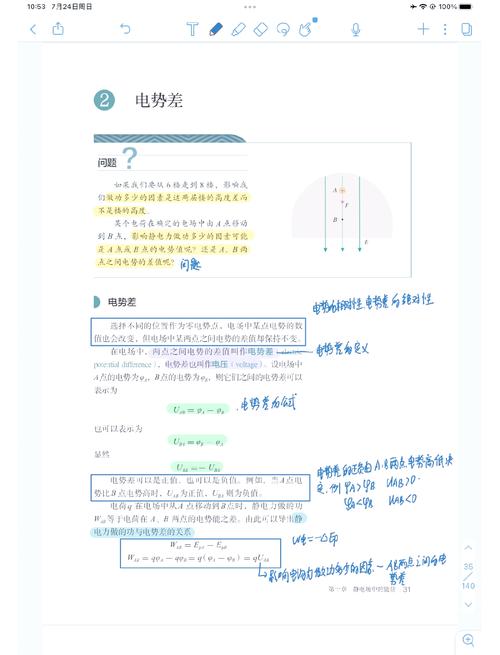 10:53 7月24日周日
100%
2 电势差
问题?
如果我们要从6楼走到8楼，影响我
们做功多少的因素是这两层楼的高度差而
不是楼的高度。
某个电荷在确定的电场中由A点移动
到B点，影响静电力做功多少的因素可能
是A点或B点的电势值呢？还是A、B两
点之间电势的差值呢？
问题
A
F
B
E
电势差
电势的相对性,电势差的绝对性
选择不同的位置作为零电势点，电场中某点电势的数
值也会改变，但电场中某两点之间电势的差值却保持不变。
在电场中，两点之间电势的差值叫作电势差（electric
电势差的定义
potential difference），电势差也叫作电压（voltage）。设电场中
A点的电势为φA，B点的电势为φB，则它们之间的电势差可以
表示为
UAB = φA − φB
电势差的公式
也可以表示为
UBA = φB − φA
显然
UAB = − UBA
电势差可以是正值，也可以是负值。例如，当A点电
势比B点电势高时，UAB为正值，UBA则为负值。
电势差的正负由A、B两点电势高低决
定，例 φA>φB UAB>0.
φA<φB UAB<0
电荷q在电场中从A点移动到B点时，静电力做的功
WAB等于电荷在A、B两点的电势能之差。由此可以导出静
电力做的功与电势差的关系
WAB = EpA − EpB
W电=−ΔEp
WAB = qφA − qφB = q（φA − φB）= qUAB
影响电场力做功多少的因素~AB两点之间的电
势差
第一章 静电场中的能量 31
35
140